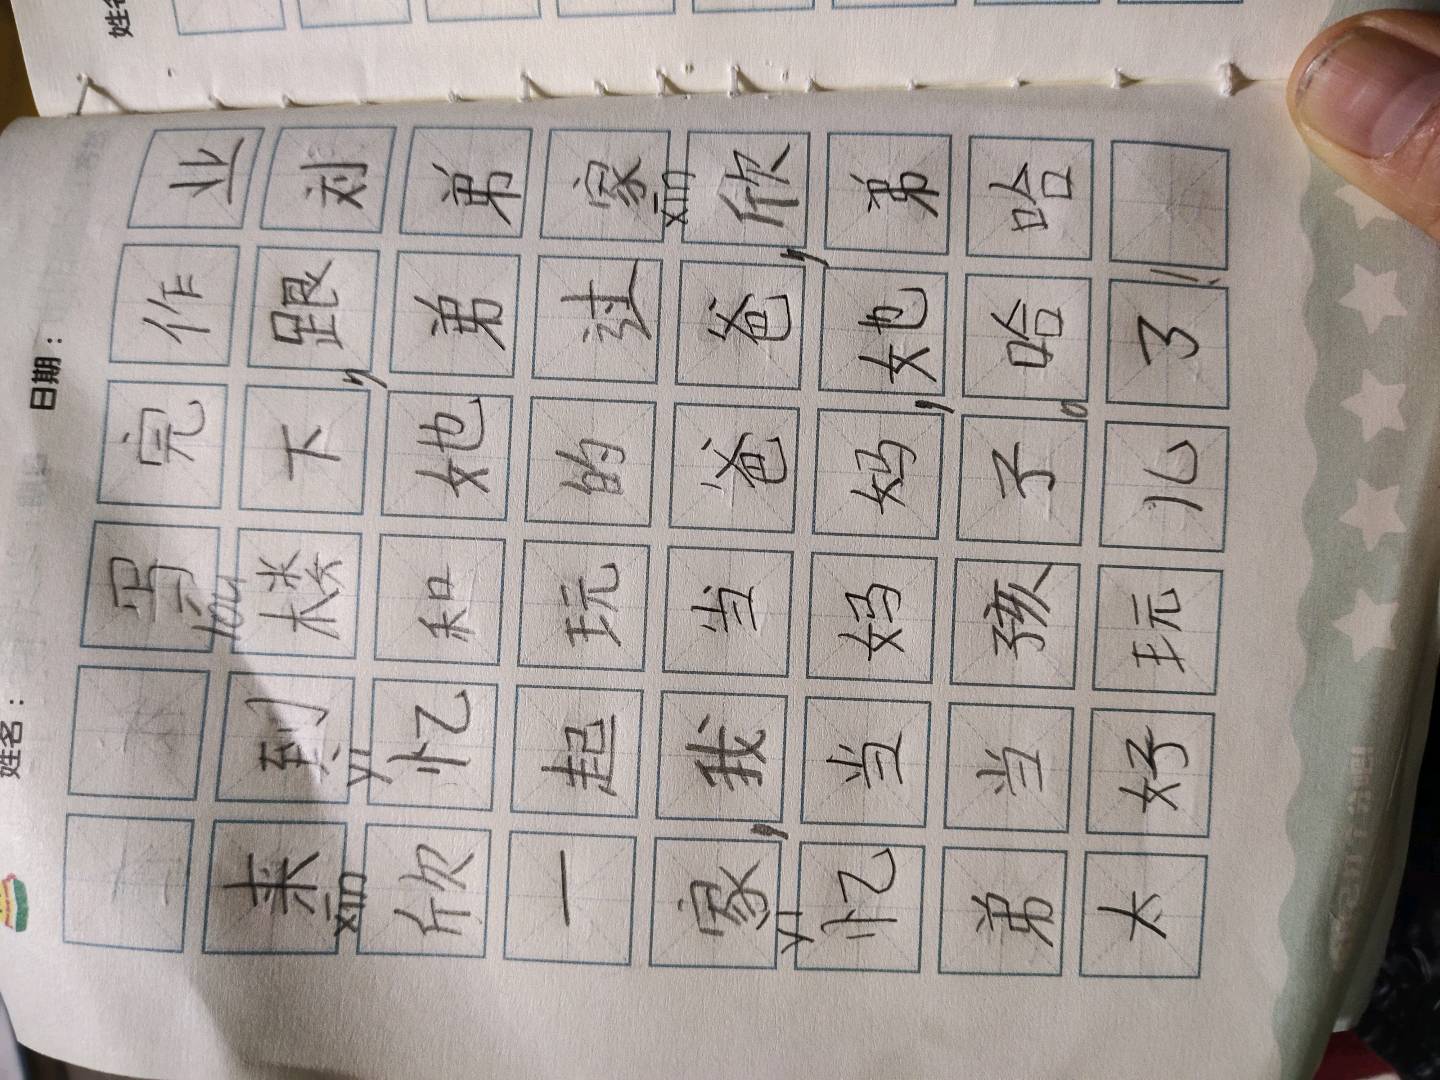 姓名： 日期：
写完作业
lóu
来到楼下，跟刘
xīn yì
欣忆和她弟弟
一起玩的过家
xīn
家，我当爸爸，欣
yì
忆当妈妈，她弟
弟当孩子。哈哈
太好玩儿了！